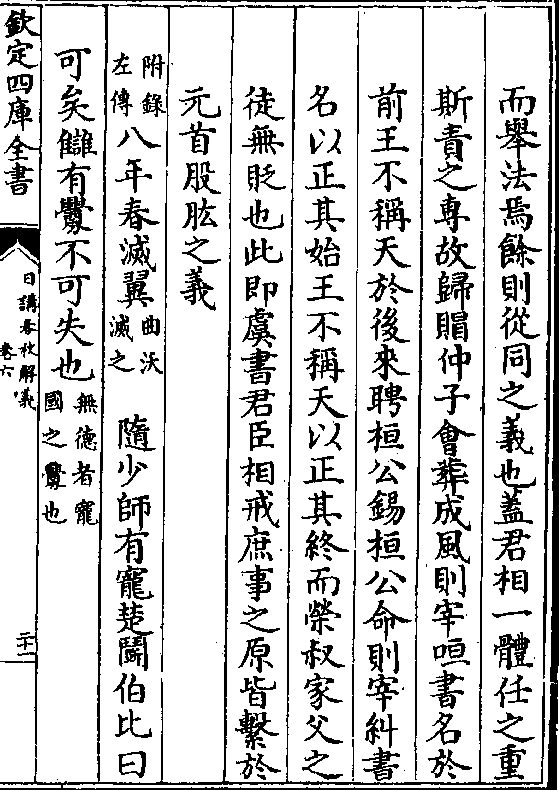 而舉法焉餘則從同之義也蓋君相一體任之重
斯責之專故歸賵仲子會葬成風則宰咺書名於
前王不稱天於後來聘桓公錫桓公命則宰糾書
名以正其始王不稱天以正其終而榮叔家父之
徒無貶也此即虞書君臣相戒庶事之原皆繫於
元首股肱之義
附錄左傳八年春滅翼曲沃滅之 隨少師有寵楚鬭伯比曰
可矣讎有釁不可失也無德者寵國之釁也
欽定四庫全書
日講春秋解義
卷六
二十一